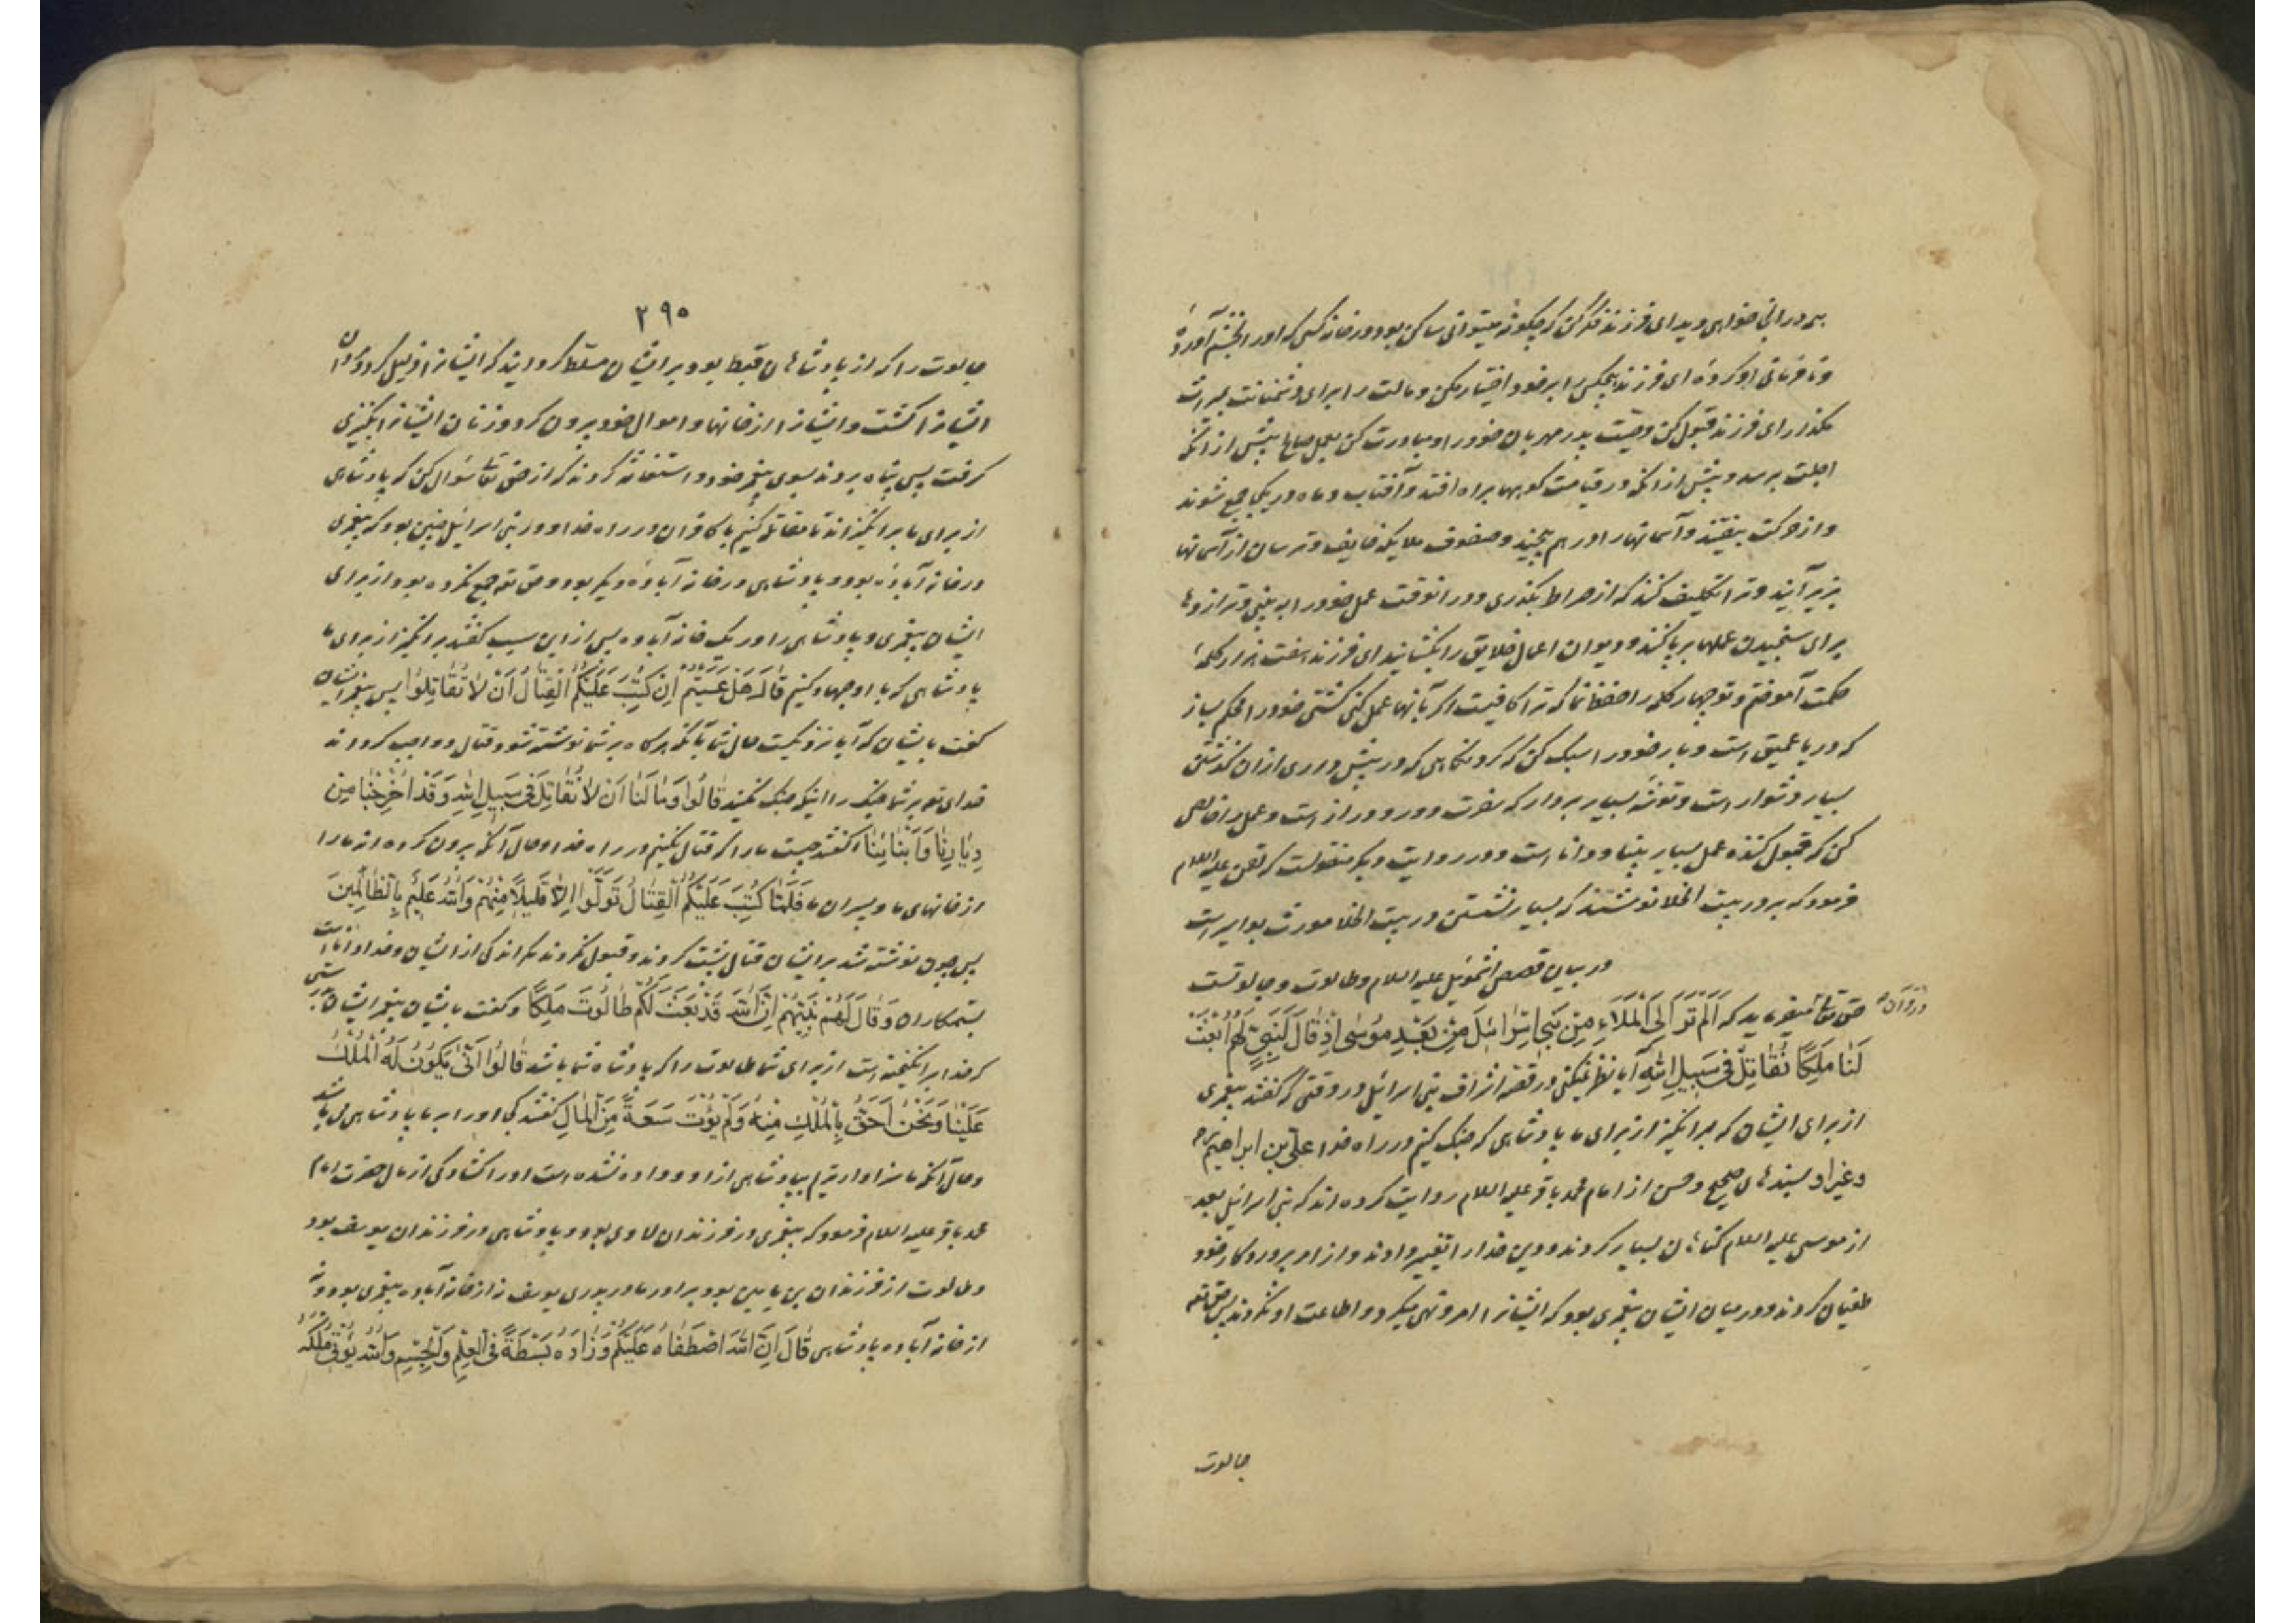 بمردرانی خواهی دید ای فرزند فکر کن که چگونه میتوانی ساکن بود در خانه کسی که او را بخشم آوردهٔ
و نافرمانی او کردهٔ ای فرزند هیچکس را بر خود اختیار مکن و مالت را برای دشمنانت بمیراث
مگذار ای فرزند قبول کن وصیت پدر مهربان خود را و مبادرت کن بعمل صالح پیش از آنکه
اجلت برسد و پیش از آنکه در قیامت کوهها براه افتد و آفتاب و ماه در یکجا جمع شوند
و از حرکت بیفتند و آسمانها را در هم پیچند و صفوف ملایکه خایف و ترسان از آسمانها
بزیر آیند و ترا تکلیف کنند که از صراط بگذری و در آنوقت عمل خود را به بینی و ترازوها
برای سنجیدن عملها برپا کنند و دیوان اعمال خلایق را بگشایند ای فرزند هفت هزار کلمهٔ
حکمت آموختم تو چهار کلمه را حفظ نما که ترا کافیست اگر بآنها عمل کنی کشتی خود را محکم بساز
که دریا عمیق است و بار خود را سبک کن که گردنگاهی که در پیش داری از آن گذشتن
بسیار دشوار است و توشه بسیار بردار که سفرت دور و دراز است و عمل را خالص
کن که قبول کننده عمل بسیار بینا و داناست و در روایت دیگر منقولست که لقمن علیه السلام
فرمود که بر در بیت الخلا نوشتند که بسیار نشستن در بیت الخلا مورث بواسیر است
در بیان قصص اشموئیل علیه السلام و طالوت و جالوتست
حق تعالی میفرماید که اَلَمْ تَرَ اِلَی الْمَلَاءِ مِنْ بَنٖی اِسْرَائٖلَ مِنْ بَعْدِ مُوسٰی اِذْ قَالَ لِنَبِیٍّ لَهُمُ ابْعَثْ
در قرآن
لَنَا مَلِکًا نُقَاتِلْ فٖی سَبٖیلِ اللّٰهِ آیا نظر نمیکنی در قصه اشراف بنی اسرائیل در وقتی که گفتند پیغمبری
از برای ایشان که برانگیز از برای ما پادشاهی که جنگ کنیم در راه خدا علی بن ابراهیم ره
و غیر او بسندهای صحیح و حسن از امام محمد باقر علیه السلام روایت کرده اند که بنی اسرائیل بعد
از موسی علیه السلام گناهان بسیار کردند و دین خدا را تغییر دادند و از امر پروردگار خود
طغیان کردند و در میان ایشان پیغمبری بود که ایشانرا امر و نهی میکرد و اطاعت او نکردند پس حق تعالی
جالوت
۲۹۵
جالوت را که از پادشاهان قبط بود بر ایشان مسلط گردانید که ایشانرا ذلیل کرد و مردان
ایشانرا کشت و ایشانرا از خانها و اموال خود بیرون کرد و زنان ایشانرا بکنیزی
گرفت پس پناه بردند بسوی پیغمبر خود و استغاثه کردند که از حق تعالی سؤال کن که پادشاهی
از برای ما برانگیزاند تا مقاتله کنیم با کافران در راه خدا و در بنی اسرائیل چنین بود که پیغمبری
در خانه آبادهٔ بود و پادشاهی در خانه آبادهٔ دیگر بود و حق تعالی جمع نکرده بود از برای
ایشان پیغمبری و پادشاهی را در یک خانه آباده پس از این سبب گفتند برانگیز از برای ما
پادشاهی که با او جهاد کنیم قَالَ هَلْ عَسَیْتُمْ اِنْ کُتِبَ عَلَیْکُمُ الْقِتَالُ اَنْ لَا تُقَاتِلُوا پس پیغمبر ایشان
گفت بایشان که آیا نزدیکست حال شما بآنکه هرگاه بر شما نوشته شود قتال و واجب گرداند
خدای تعالی بر شما جنگ را اینکه جنگ نکنید قَالُوا وَمَا لَنَا اَنْ لَا نُقَاتِلَ فٖی سَبٖیلِ اللّٰهِ وَ قَدْ اُخْرِجْنَا مِنْ
دِیَارِنَا وَ اَبْنَائِنَا گفتند چیست ما را که قتال نکنیم در راه خدا و حال آنکه بیرون کرده اند ما را
از خانهای ما و پسران ما فَلَمَّا کُتِبَ عَلَیْکُمُ الْقِتَالُ تَوَلَّوْا اِلَّا قَلٖیلًا مِنْهُمْ وَ اللّٰهُ عَلٖیمٌ بِالظَّالِمٖینَ
پس چون نوشته شد بر ایشان قتال پشت کردند و قبول نکردند مگر اندکی از ایشان و خدا داناست
بستمکاران وَ قَالَ لَهُمْ نَبِیُّهُمْ اِنَّ اللّٰهَ قَدْ بَعَثَ لَکُمْ طَالُوتَ مَلِکًا و گفت بایشان پیغمبر ایشان
که خدا برانگیخته است از برای شما طالوت را که پادشاه شما باشد قَالُوا اَنّٰی یَکُونُ لَهُ الْمُلْکُ
عَلَیْنَا وَ نَحْنُ اَحَقُّ بِالْمُلْکِ مِنْهُ وَ لَمْ یُؤْتَ سَعَةً مِنَ الْمَالِ گفتند کجا او را بر ما پادشاهی می باشد
و حال آنکه ما سزاوارتریم بپادشاهی از او و داده نشده است او را گشادگی از مال حضرت امام
محمد باقر علیه السلام فرمود که پیغمبری در فرزندان لاوی بود و پادشاهی در فرزندان یوسف بود
و طالوت از فرزندان بن یامین بود برادر مادر پدری یوسف نه از خانه آباده پیغمبری بود و نه
از خانه آباده پادشاهی قَالَ اِنَّ اللّٰهَ اصْطَفَاهُ عَلَیْکُمْ وَ زَادَهُ بَسْطَةً فِی الْعِلْمِ وَ الْجِسْمِ وَ اللّٰهُ یُؤْتٖی مُلْکَهُ